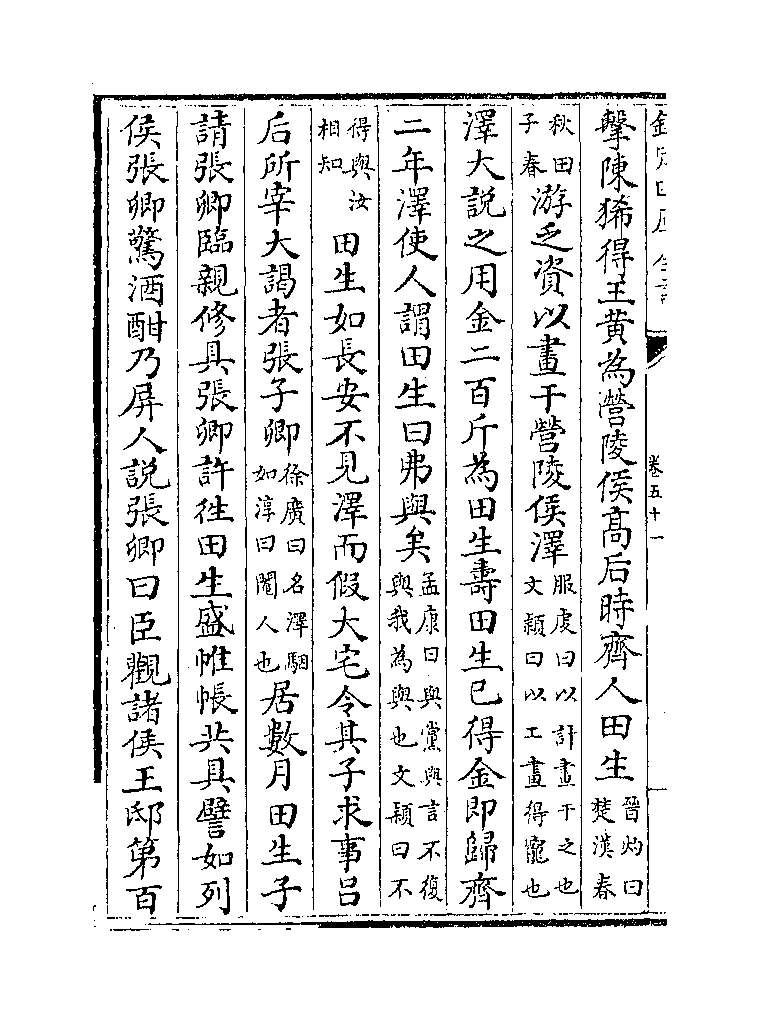 欽定四庫全書
卷五十一
擊陳豨得王黄為營陵侯髙后時齊人田生晉灼曰楚漢春
秋田子春游乏資以畫干營陵侯澤服䖍曰以計畫干之也文穎曰以工畫得寵也
澤大說之用金二百斤為田生壽田生已得金即歸齊
二年澤使人謂田生曰弗與矣孟康曰與黨與言不復與我為與也文穎曰不
得與汝相知田生如長安不見澤而假大宅令其子求事吕
后所宰大謁者張子卿徐廣曰名澤駰如淳曰閹人也居數月田生子
請張卿臨親修具張卿許往田生盛帷帳共具譬如列
侯張卿驚酒酣乃屏人說張卿曰臣觀諸侯王邸第百